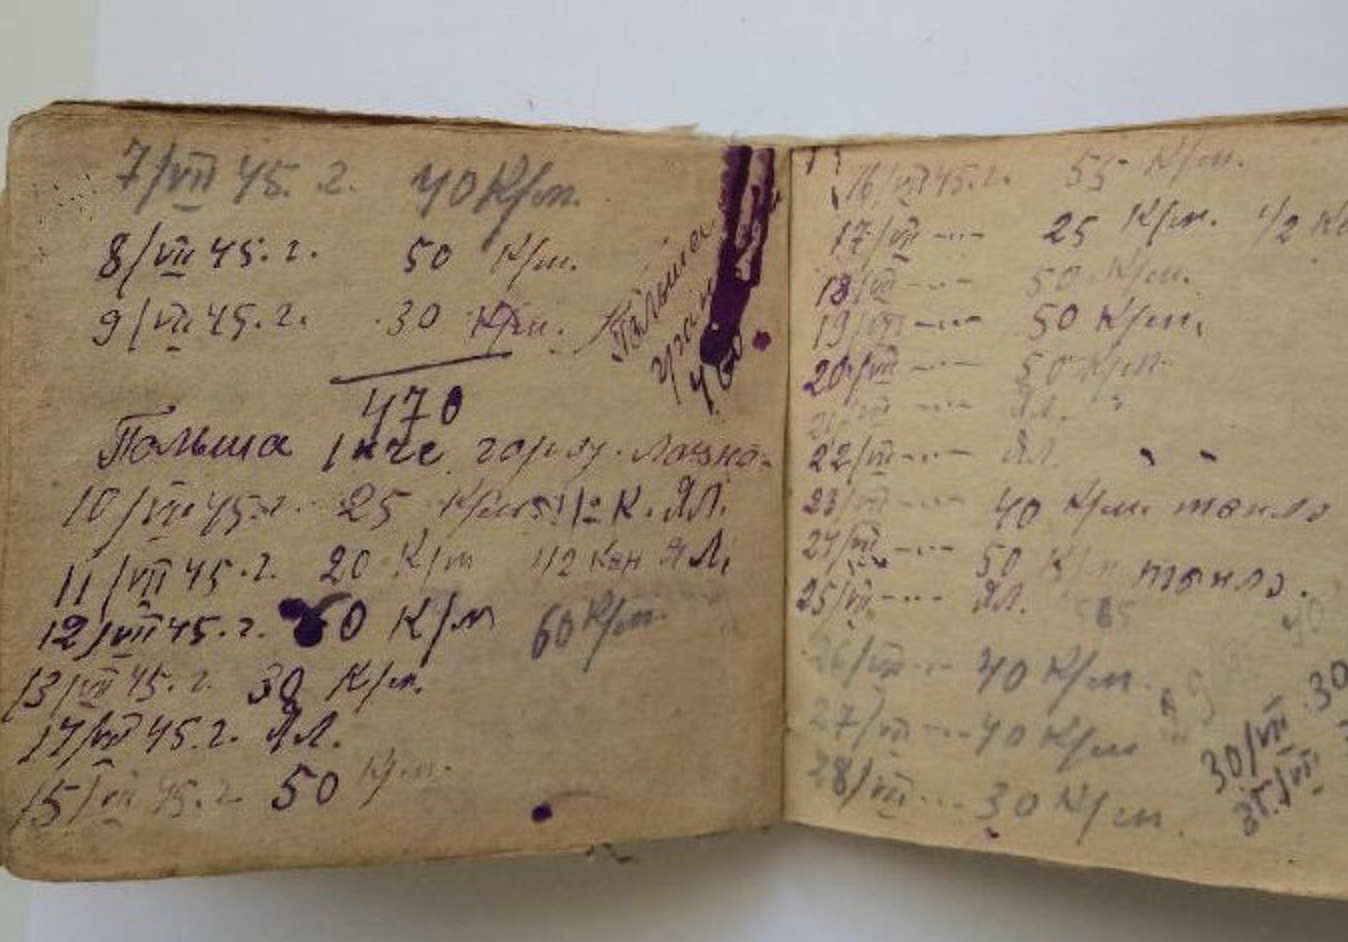 7/VII 45. г. 40 К/м.
8/VII 45. г. 50 К/м.
9/VII 45. г. 30 К/м.
Польша
470
Польша
10/VII 45. г. 25 К/м
11/VII 45. г. 20 К/м 1/2 ЯЛ.
12/VII 45. г. 60 К/м 60 К/м.
13/VII 45. г. 30 К/м.
14/VII 45. г. ЯЛ.
15/VII 45. г. 50 К/м.
16/VII 45. г. 55 К/м.
17/VII -"- 25 К/м. 1/2
18/VII -"- 50 К/м.
19/VII -"- 50 К/м.
20/VII -"- 50 К/м.
21/VII -"- ЯЛ. "
22/VII -"- ЯЛ. " "
23/VII -"- 40 К/м.
24/VII -"- 50 К/м
25/VII -"- ЯЛ.
26/VII -"- 40 К/м.
27/VII -"- 40 К/м
28/VII -"- 30 К/м.
30/VII 30
31/VII